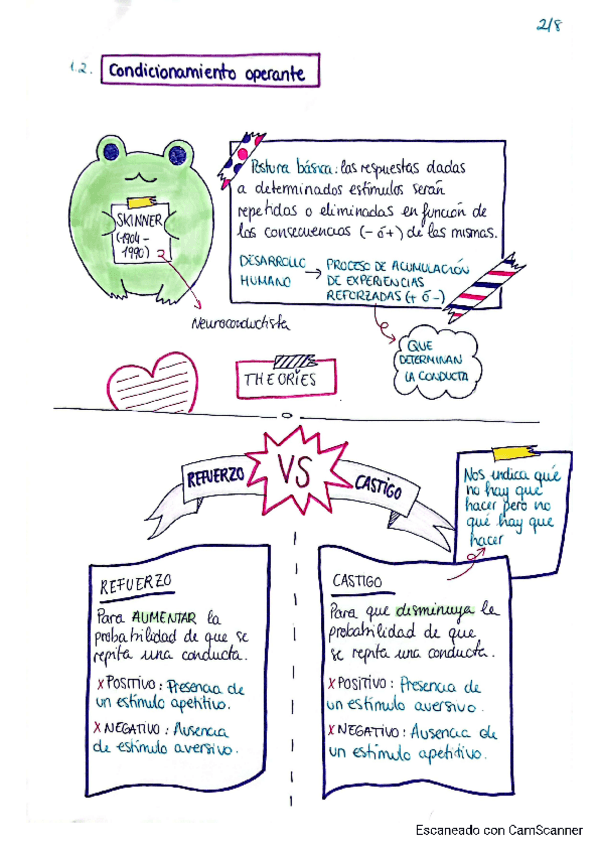 2/8
1.2. Condicionamiento operante
SKINNER
(1904 -
1990)
Neuroconductista
Postura básica: las respuestas dadas
a determinados estímulos serán
repetidas o eliminadas en función de
las consecuencias (- ó +) de las mismas.
DESARROLLO
HUMANO → PROCESO DE ACUMULACIÓN
DE EXPERIENCIAS
REFORZADAS (+ ó -)
QUE
DETERMINAN
LA CONDUCTA
THEORIES
REFUERZO VS CASTIGO
Nos indica qué
no hay que
hacer pero no
qué hay que
hacer
REFUERZO
Para AUMENTAR la
probabilidad de que se
repita una conducta.
x POSITIVO: Presencia de
un estímulo apetitivo.
x NEGATIVO: Ausencia
de estímulo aversivo.
CASTIGO
Para que disminuya la
probabilidad de que
se repita una conducta.
x POSITIVO: Presencia de
un estímulo aversivo.
x NEGATIVO: Ausencia de
un estímulo apetitivo.
Escaneado con CamScanner